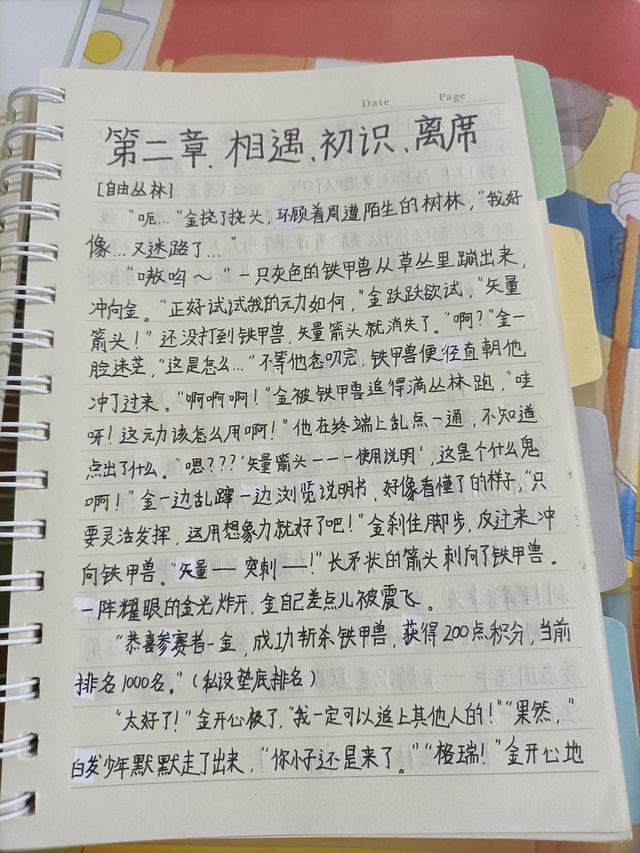 Date Page
第二章. 相遇、初识、离席
[自由丛林]
“呃…”金挠了挠头, 环顾着周遭陌生的树林, “我好
像…又迷路了…”
“嗷呜～” 一只灰色的铁甲兽从草丛里蹦出来,
冲向金。“正好试试我的元力如何,”金跃跃欲试, “矢量
箭头!” 还没打到铁甲兽, 矢量箭头就消失了。“啊?”金一
脸迷茫, “这是怎么…”不等他念叨完, 铁甲兽便径直朝他
冲了过来。“啊啊啊!”金被铁甲兽追得满丛林跑, “哇
呀! 这元力该怎么用啊!” 他在终端上乱点一通, 不知道
点出了什么。“嗯???‘矢量箭头———使用说明’, 这是个什么鬼
啊!” 金一边乱蹿一边浏览说明书, 好像看懂了的样子, “只
要灵活发挥, 运用想象力就好了吧!” 金刹住脚步, 反过来冲
向铁甲兽。“矢量——突刺——!” 长矛状的箭头刺向了铁甲兽。
一阵耀眼的金光炸开, 金自己差点儿被震飞。
“恭喜参赛者-金, 成功斩杀铁甲兽, 获得200点积分, 当前
排名1000名。”(私设垫底排名)
“太好了!” 金开心极了, “我一定可以追上其他人的!” “果然,”
白发少年默默走了出来, “你小子还是来了。” “格瑞!” 金开心地